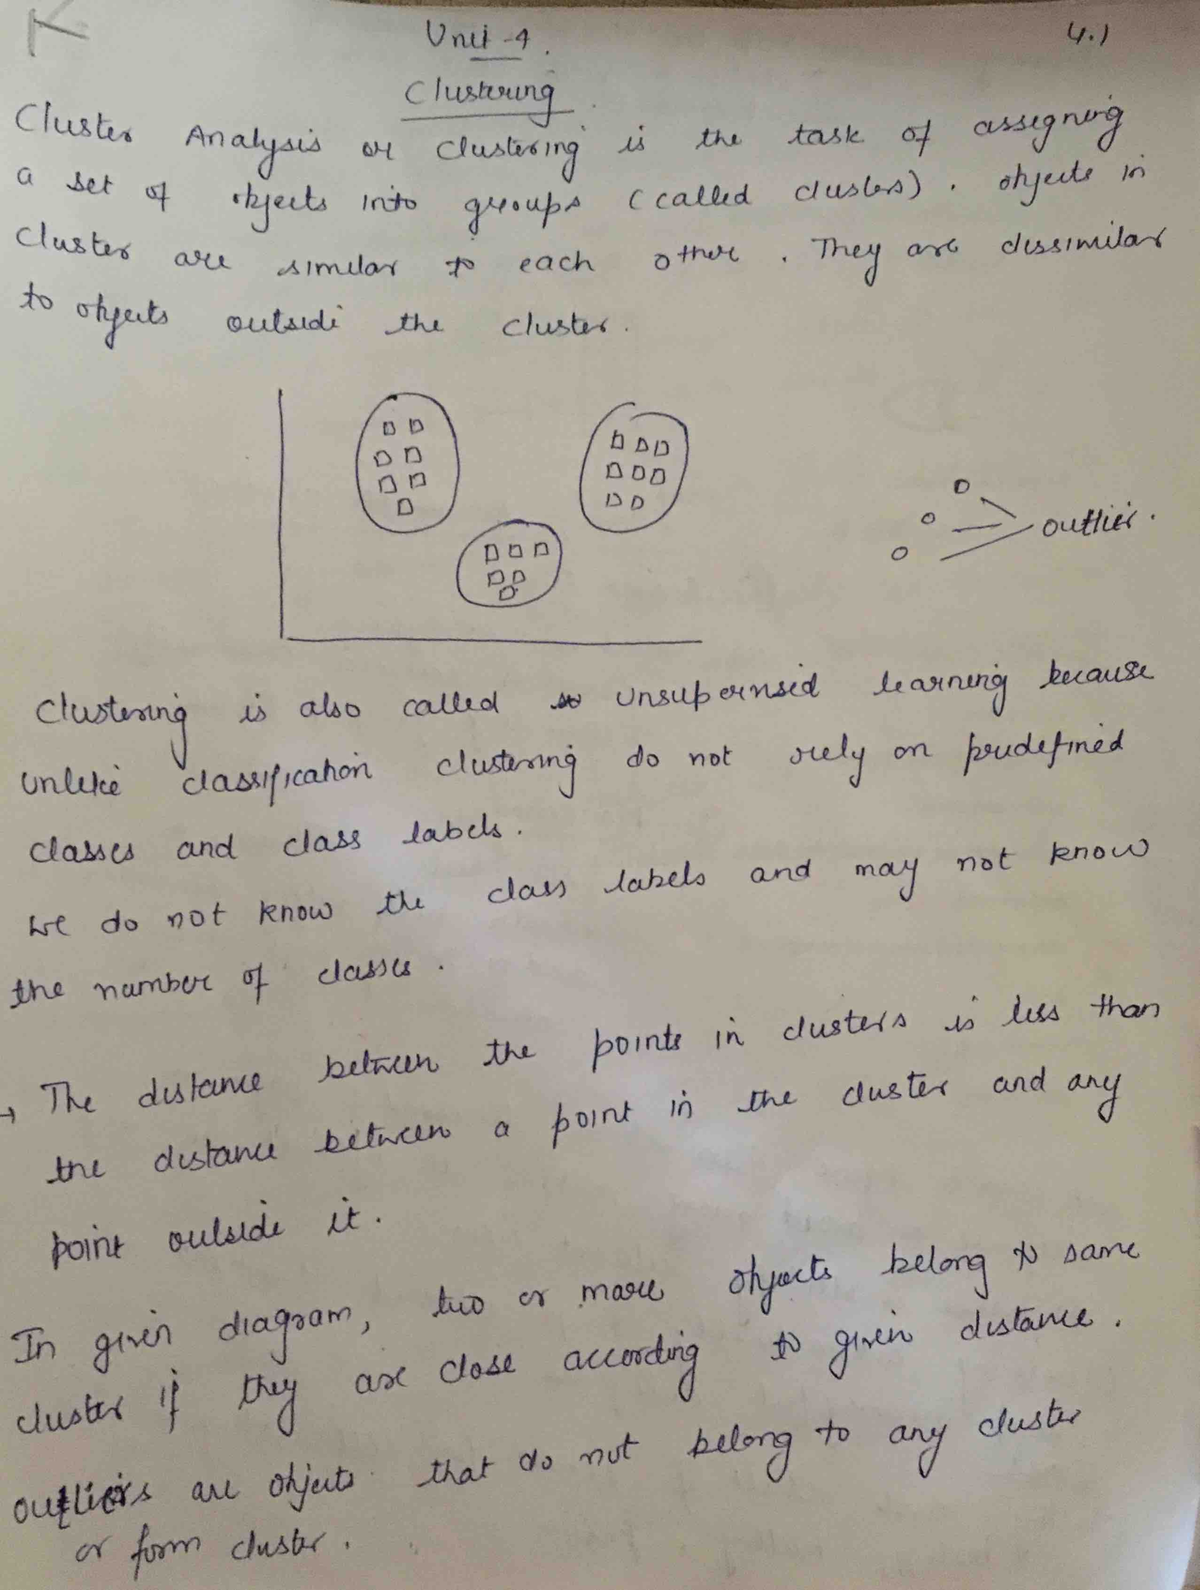 Unit -4. 4.1
Clustering
Cluster Analysis or clustering is the task of assigning
a set of objects into groups (called clusters). objects in
cluster are similar to each other. They are dissimilar
to objects outside the cluster.
outlier.
Clustering is also called unsupervised learning because
unlike classification clustering do not rely on predefined
classes and class labels.
we do not know the class labels and may not know
the number of classes.
→ The distance between the points in clusters is less than
the distance between a point in the cluster and any
point outside it.
In given diagram, two or more objects belong to same
cluster if they are close according to given distance.
outliers are objects that do not belong to any cluster
or form cluster.